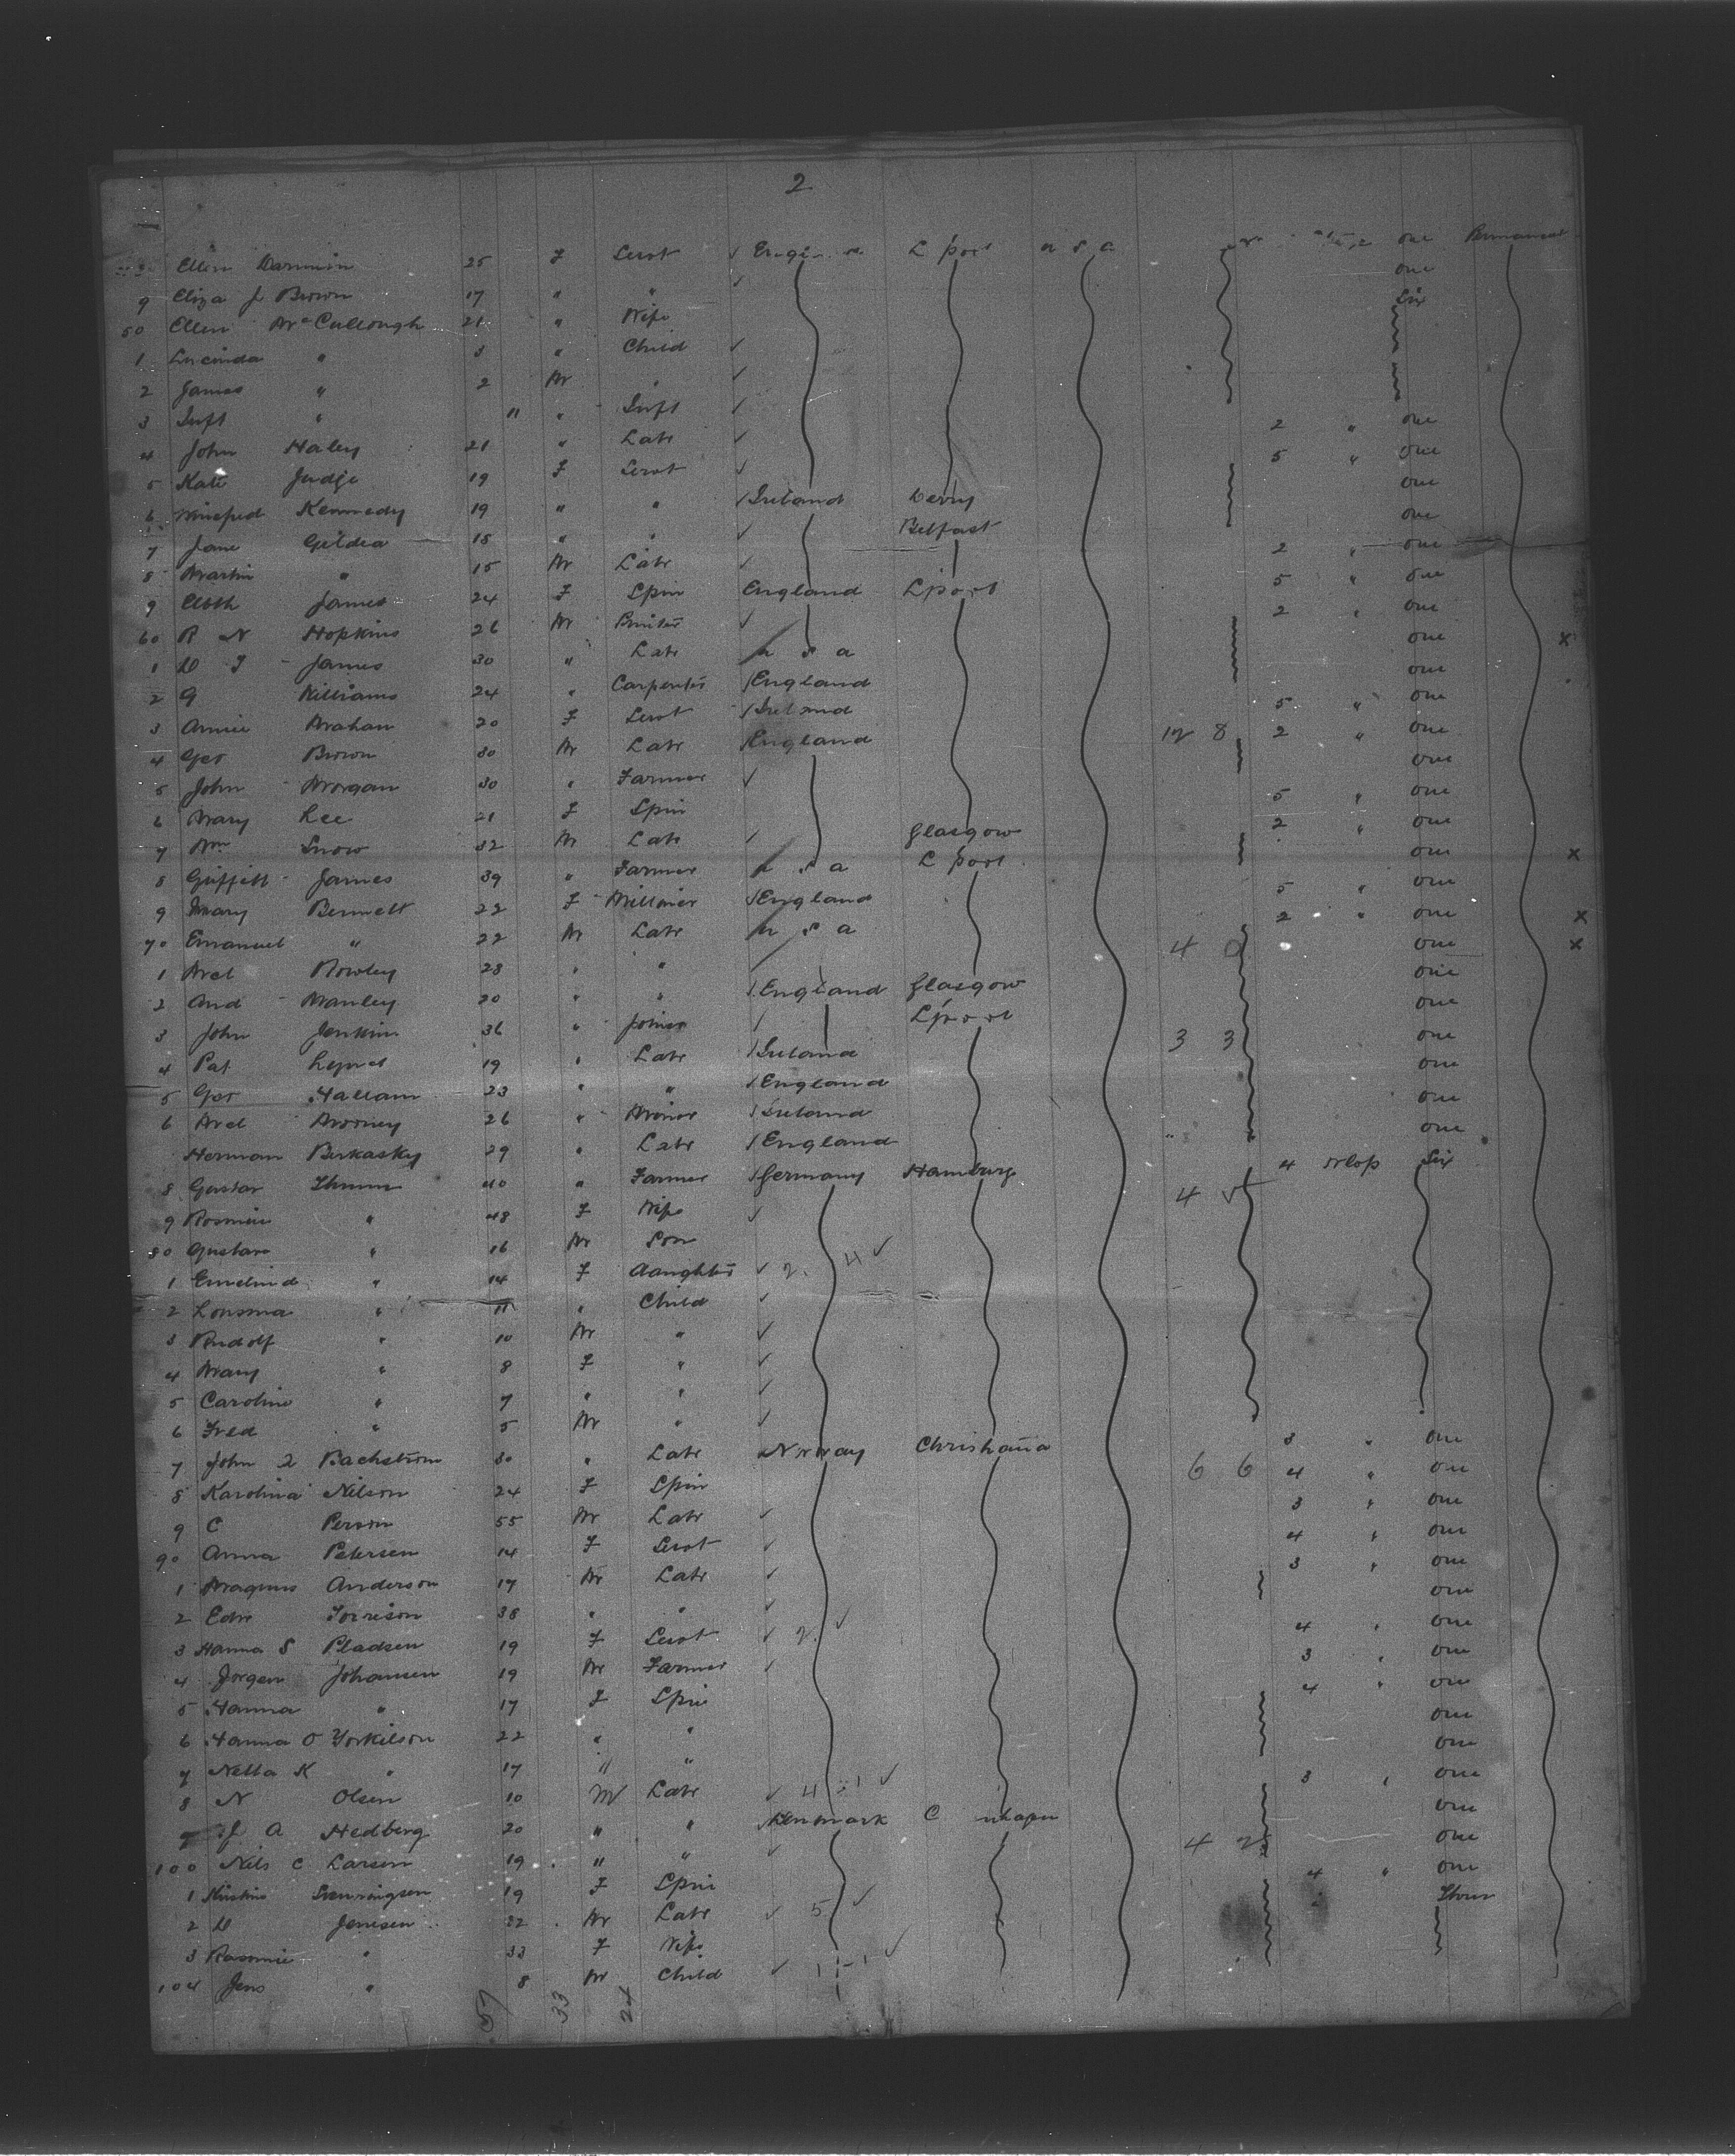 2
Ellen 25 F Servt L'pool U S A one Permanent
9 Eliza J Brown 17 " " ✓ one
50 Ellen McCullough 21 " Wife Six
1 Lucinda " 3 " Child ✓
2 James " 2 M " ✓
3 Inft " 11 " Inft ✓
4 John Haley 21 " Labr ✓ 2 " one
5 Kate Judge 19 F Servt ✓ 5 " one
6 Winefred Kennedy 19 " " ✓ Ireland Derry one
7 Jane Gildea 18 " " ✓ Belfast one
8 Martin " 15 M Labr ✓ 2 " one
9 Elbth James 24 F Spin England L'pool 5 " one
60 R N Hopkins 26 M ✓ 2 " one
1 D J James 30 " Labr U S A one x
2 G Williams 24 " Carpenter ✓ England one
3 Annie Mahan 20 F Servt ✓ Ireland 5 " one
4 Geo Brown 30 M Labr ✓ England 12 8 2 " one
5 John Morgan 30 " Farmer ✓ one
6 Mary Lee 21 F Spin 5 " one
7 Wm Snow 32 M Labr ✓ Glasgow 2 " one
8 Griffith James 39 " Farmer U S A L'pool one x
9 Mary Bennett 22 F Milliner ✓ England 5 " one
70 Emanuel " 22 M Labr U S A 2 " one x
1 Rowley 28 " " 4 0 one x
2 And Manley 20 " " ✓ England Glasgow one
3 John Jenkin 36 " Joiner ✓ L'pool one
4 Pat 19 " Labr ✓ Ireland 3 3 one
5 Geo Hallam 23 " " ✓ England one
6 Mooney 26 " Minor ✓ Ireland one
Herman Birkasky 29 " Labr ✓ England one
8 Gustav Thumm 40 " Farmer ✓ Germany Hamburg 4 Six
9 Rosmine " 48 F Wife ✓ 4
80 Gustave " 16 M Son
1 " 14 F daughter ✓ 2. 4 ✓
2 " 11 " Child ✓
3 Rudolf " 10 M " ✓
4 Mary " 8 F " ✓
5 Caroline " 7 " " ✓
6 Fred " 5 M " ✓
7 John Bachstrom 30 " Labr Norway Christiania 3 " one
8 Karolina Nilson 24 F Spin 6 6 4 " one
9 C Person 55 M Labr ✓ 3 " one
90 Anna Petersen 14 F Servt ✓ 4 " one
1 Magnus Anderson 17 M Labr ✓ 3 " one
2 Edw Torrison 38 " " ✓ one
3 Hanna S Pladsen 19 F Servt ✓ 2. ✓ 4 " one
4 Jorgen Johansen 19 M Farmer ✓ 3 " one
5 Hanna " 17 F Spin 4 " one
6 Hanna O Torkilson 22 " " one
7 Netta K " 17 " " one
8 N Olsen 10 M Labr ✓ 4 1 ✓ 3 " one
J A Hedberg 20 " " Denmark one
100 Nils C Larsen 19 " " ✓ 4 2 one
1 Kirstine Svenningsen 19 F Spin 4 " one
2 D Jensen 32 M Labr ✓ 5 ✓ Three
3 Rasmine " 33 F Wife ✓
104 Jens " 8 M Child ✓ 1 - 1
57 33 24